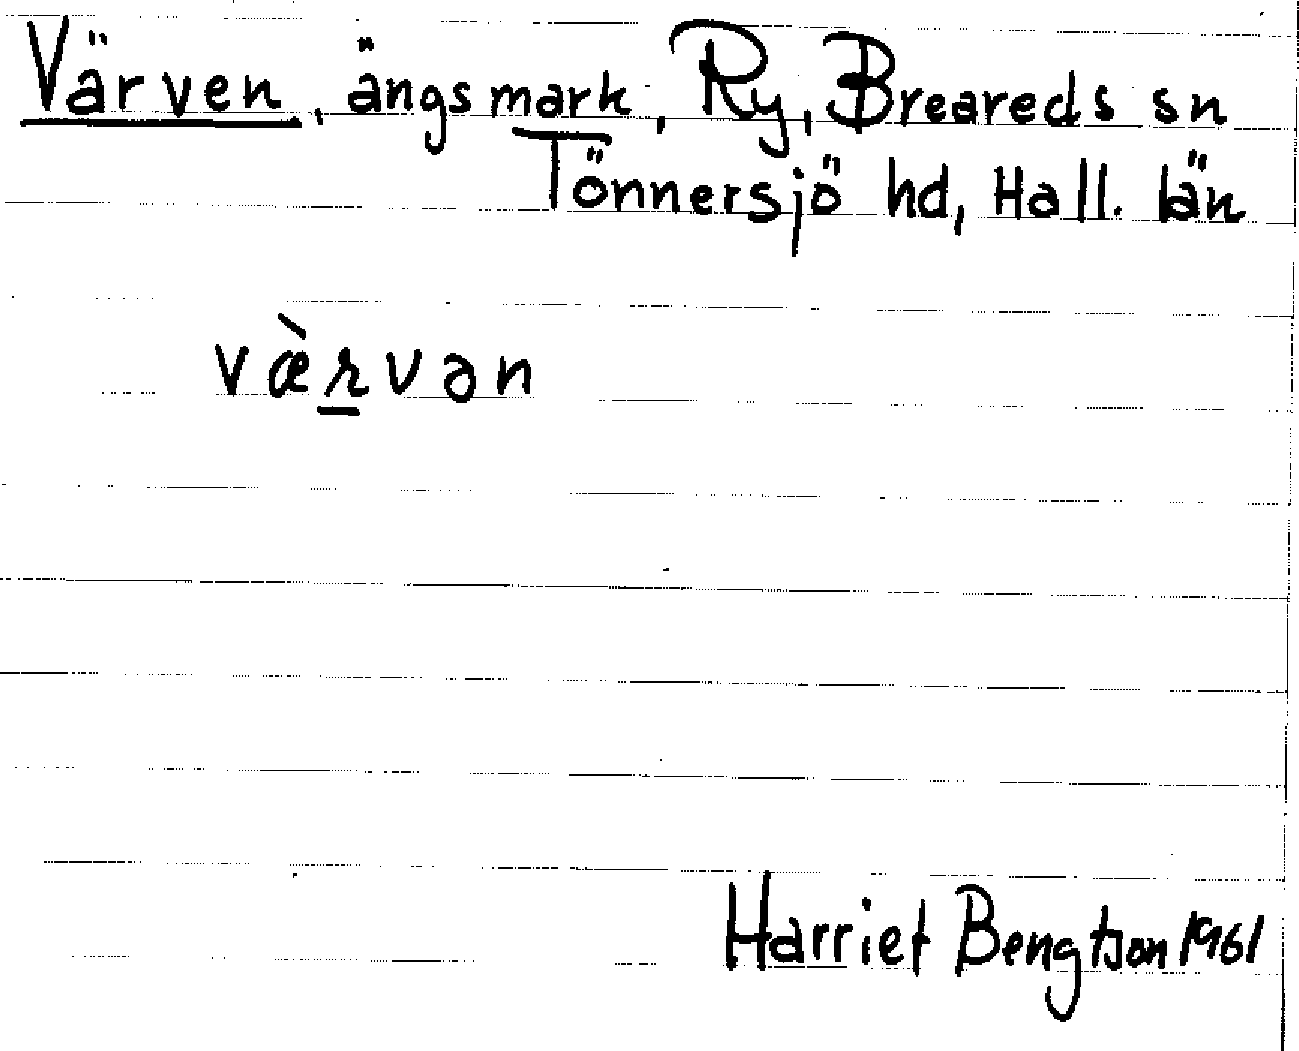 Värven, ängsmark, Ry, Breareds sn
Tönnersjö hd, Hall. län
væ̀rvən
Harriet Bengtson 1961